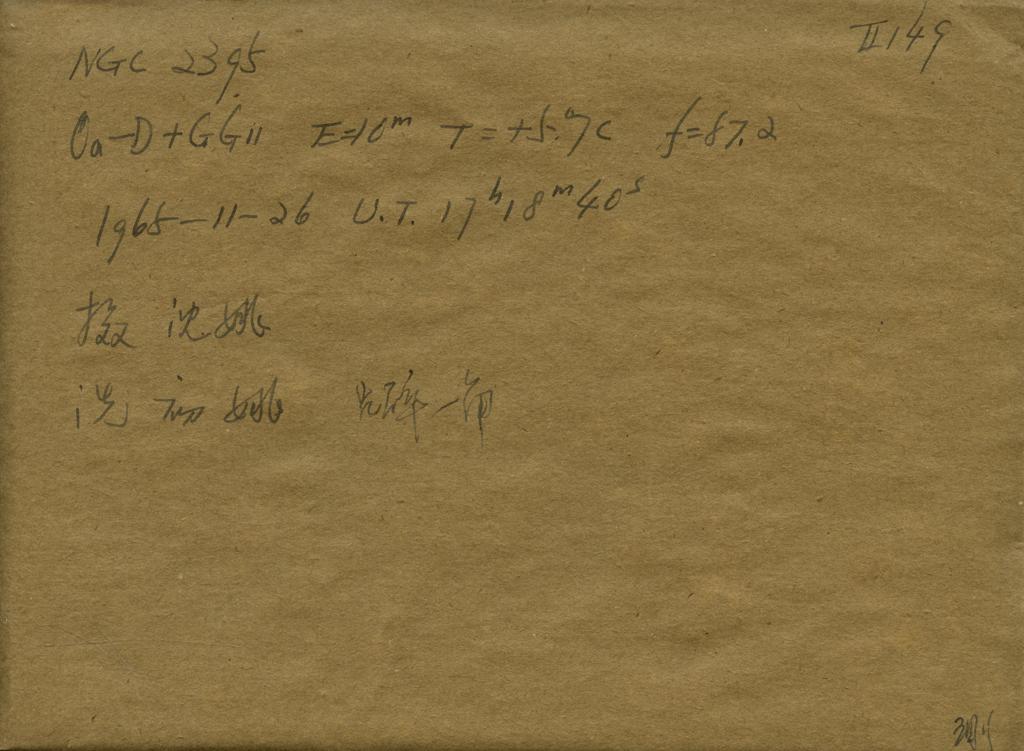 II 149
NGC 2395
Oa-D+GG11 E=10ᵐ T=+5.°7C f=87.2
1965-11-26 U.T. 17ʰ18ᵐ40ˢ
摄 沈姚
洗 初姚 碎一角